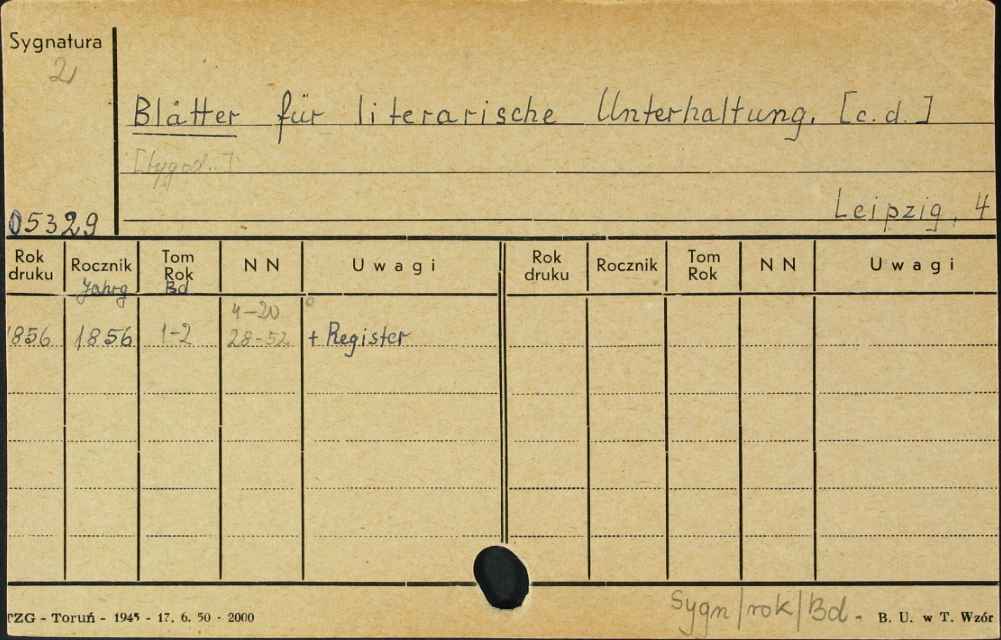 Sygnatura
2
Blätter für literarische Unterhaltung. [c.d.]
[tygod..]
Leipzig, 4
05329
Rok druku Rocznik Tom Rok N N U w a g i Rok druku Rocznik Tom Rok N N U w a g i
Jahrg Bd
4-20
1856 1856 1-2 28-52 + Register
Sygn/rok/Bd -
TZG - Toruń - 1945 - 17. 6. 50 - 2000 B. U. w T. Wzór